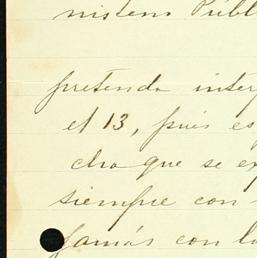 nisterio Públ
pretenda inter
el 13, pues es
cho que se ex
siempre con
Jamás con la